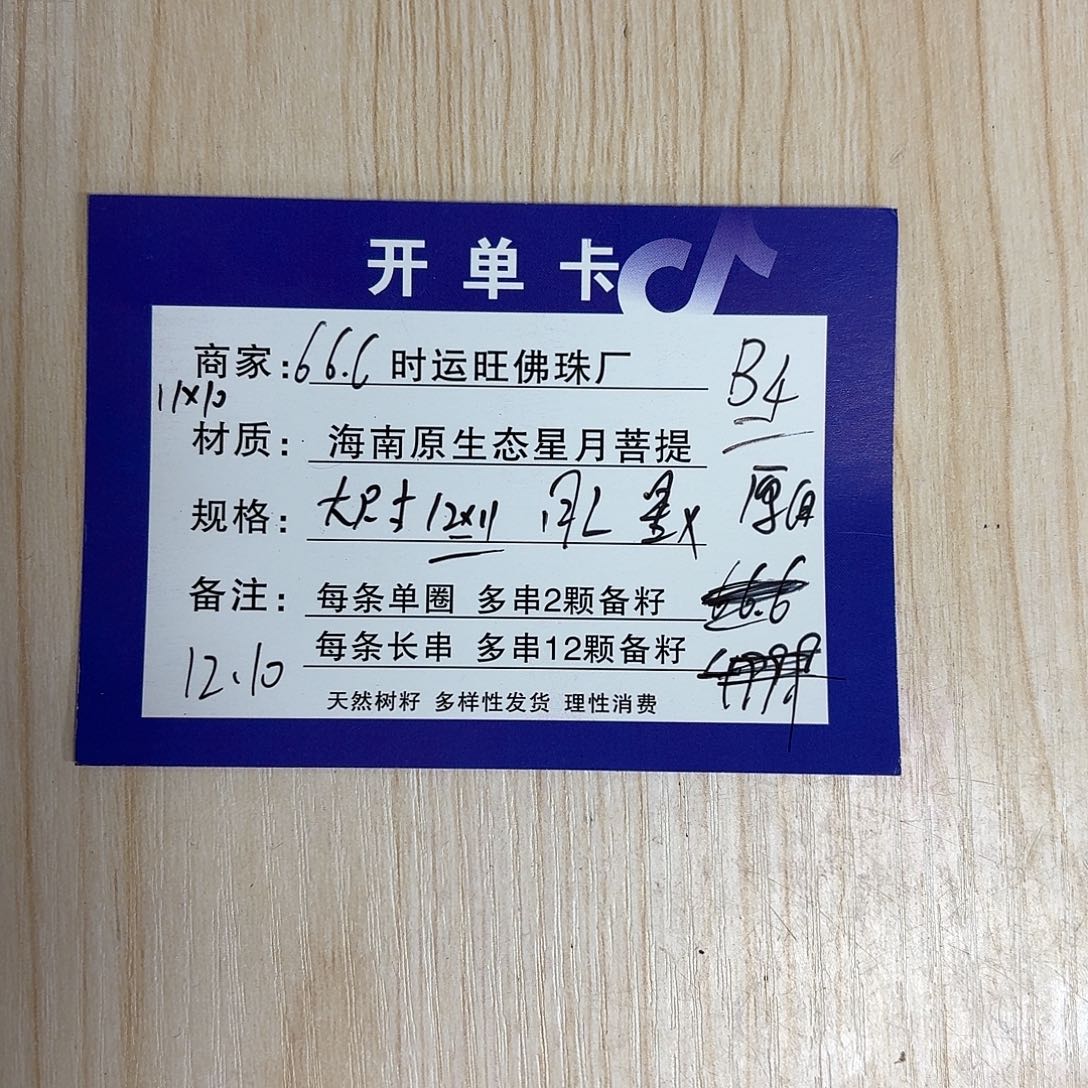 开单卡
商家：66.6 时运旺佛珠厂 B4
11×10
材质：海南原生态星月菩提
规格：大尺寸12×11
备注：每条单圈 多串2颗备籽
每条长串 多串12颗备籽
12.10
天然树籽 多样性发货 理性消费